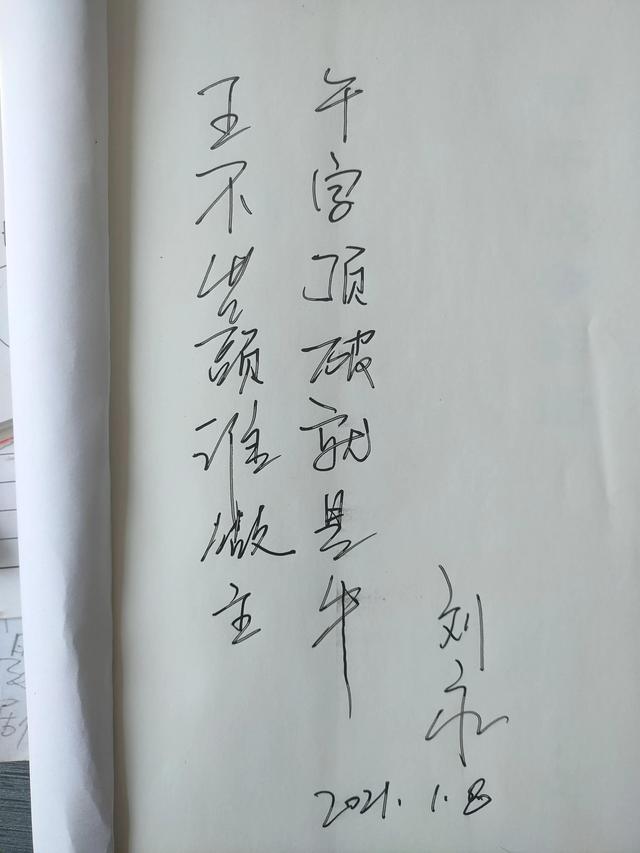 王不出頭谁做主
午字顶破就是牛
刘永
2021.1.8